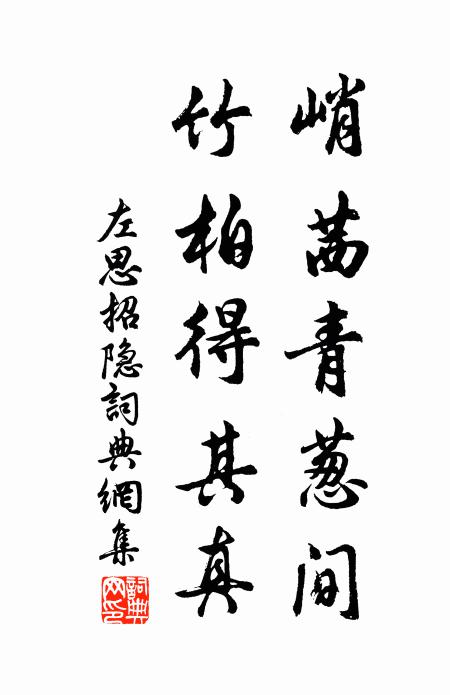 峭茜青葱间
竹柏得其真
左思招隐詞典網集
詞典网印